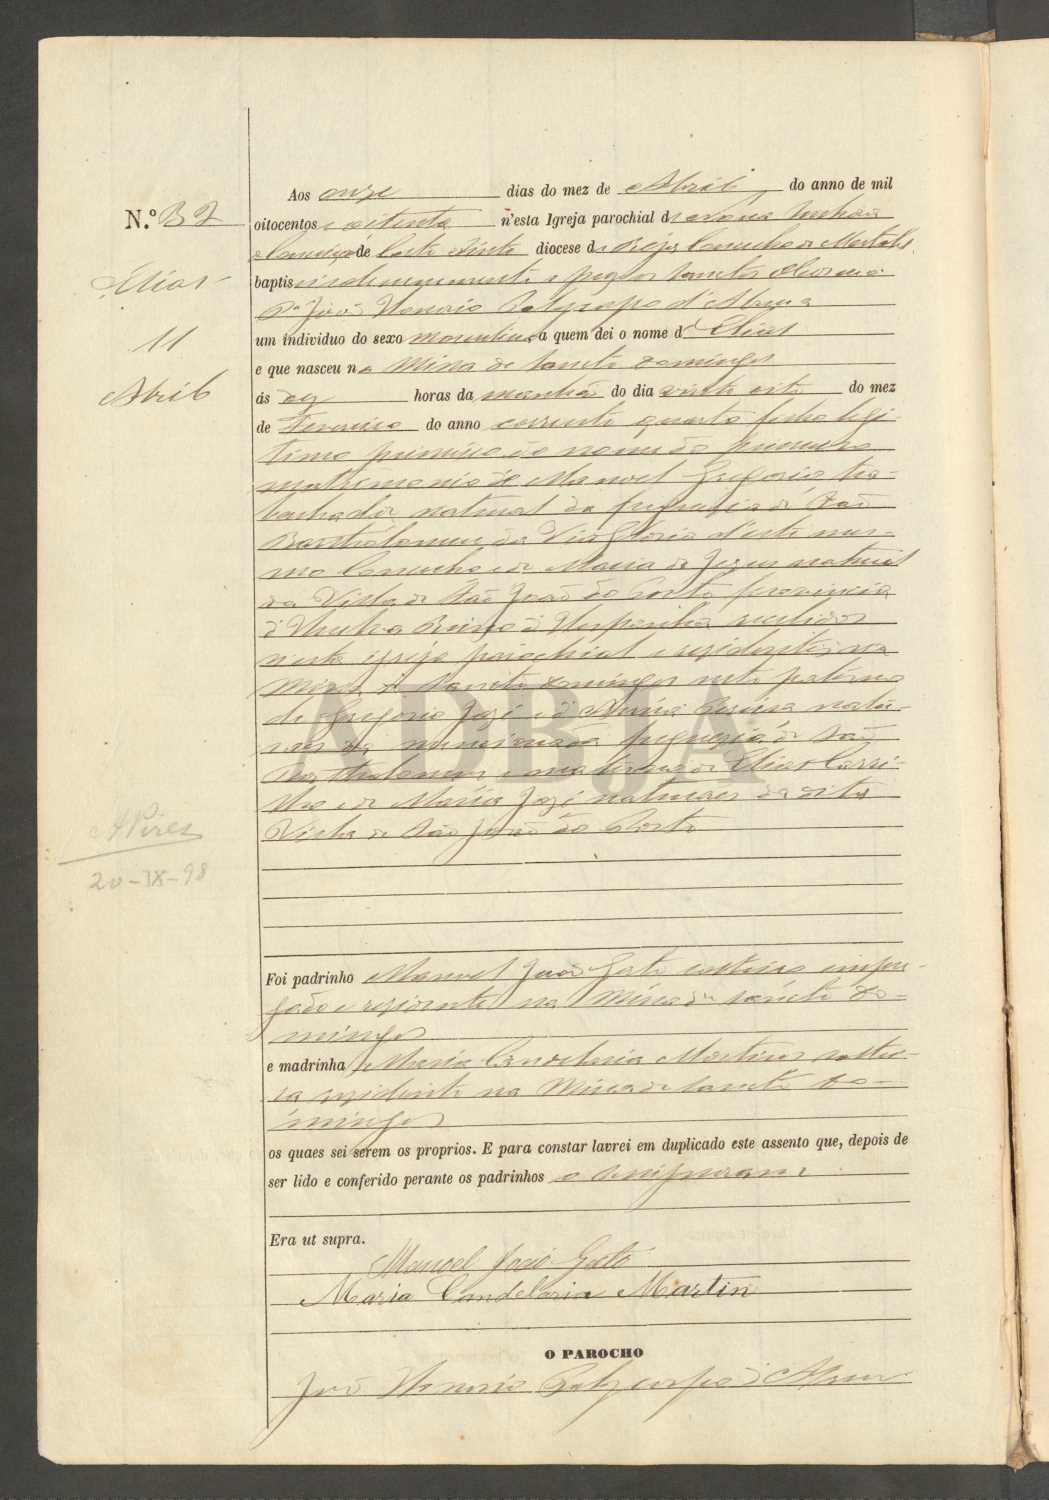 N.º 32
Elias
11
Abril
Aos onze dias do mez de Abril do anno de mil
oitocentos e oitenta n'esta Igreja parochial d
Conceição de Corte do Pinto diocese de Beja, Concelho de Mertola
baptisei solemnemente e puz os sanctos oleos
P.e João Honorio Polycarpo d'
um individuo do sexo masculino a quem dei o nome d'Elias
e que nasceu na Mina de Sancto Domingos
ás dez horas da manhã do dia vinte oito do mez
de Fevereiro do anno corrente quarto filho legi-
timo primeiro do nome do primeiro
matrimonio de Manoel Gregorio tra-
balhador natural da freguezia de São
Bartholomeu da Via Gloria d'este mes-
mo Concelho e de Maria de Jezus natural
da Villa de São João do Porto provincia
d'Huelva Reino d'Hespanha recebidos
n'esta igreja parochial e rezidentes na
Mina de Sancto Domingos neto paterno
de Gregorio José e de Anna natu-
raes da mencionada freguezia de São
Bartholomeu e materno de Elias Carri-
lho e de Maria José naturaes da dita
Villa de São João do Porto
APires
20-IX-98
Foi padrinho Manoel João Gato solteiro empre-
gado e rezidente na Mina de Sancto Do-
mingos
e madrinha Maria Candelaria Martins soltei-
ra rezidente na Mina de Sancto Do-
mingos
os quaes sei serem os proprios. E para constar lavrei em duplicado este assento que, depois de
ser lido e conferido perante os padrinhos o assignaram
Era ut supra.
Manoel João Gato
Maria Candelaria Martin
O PAROCHO
João Honorio Polycarpo d'
ADBJA